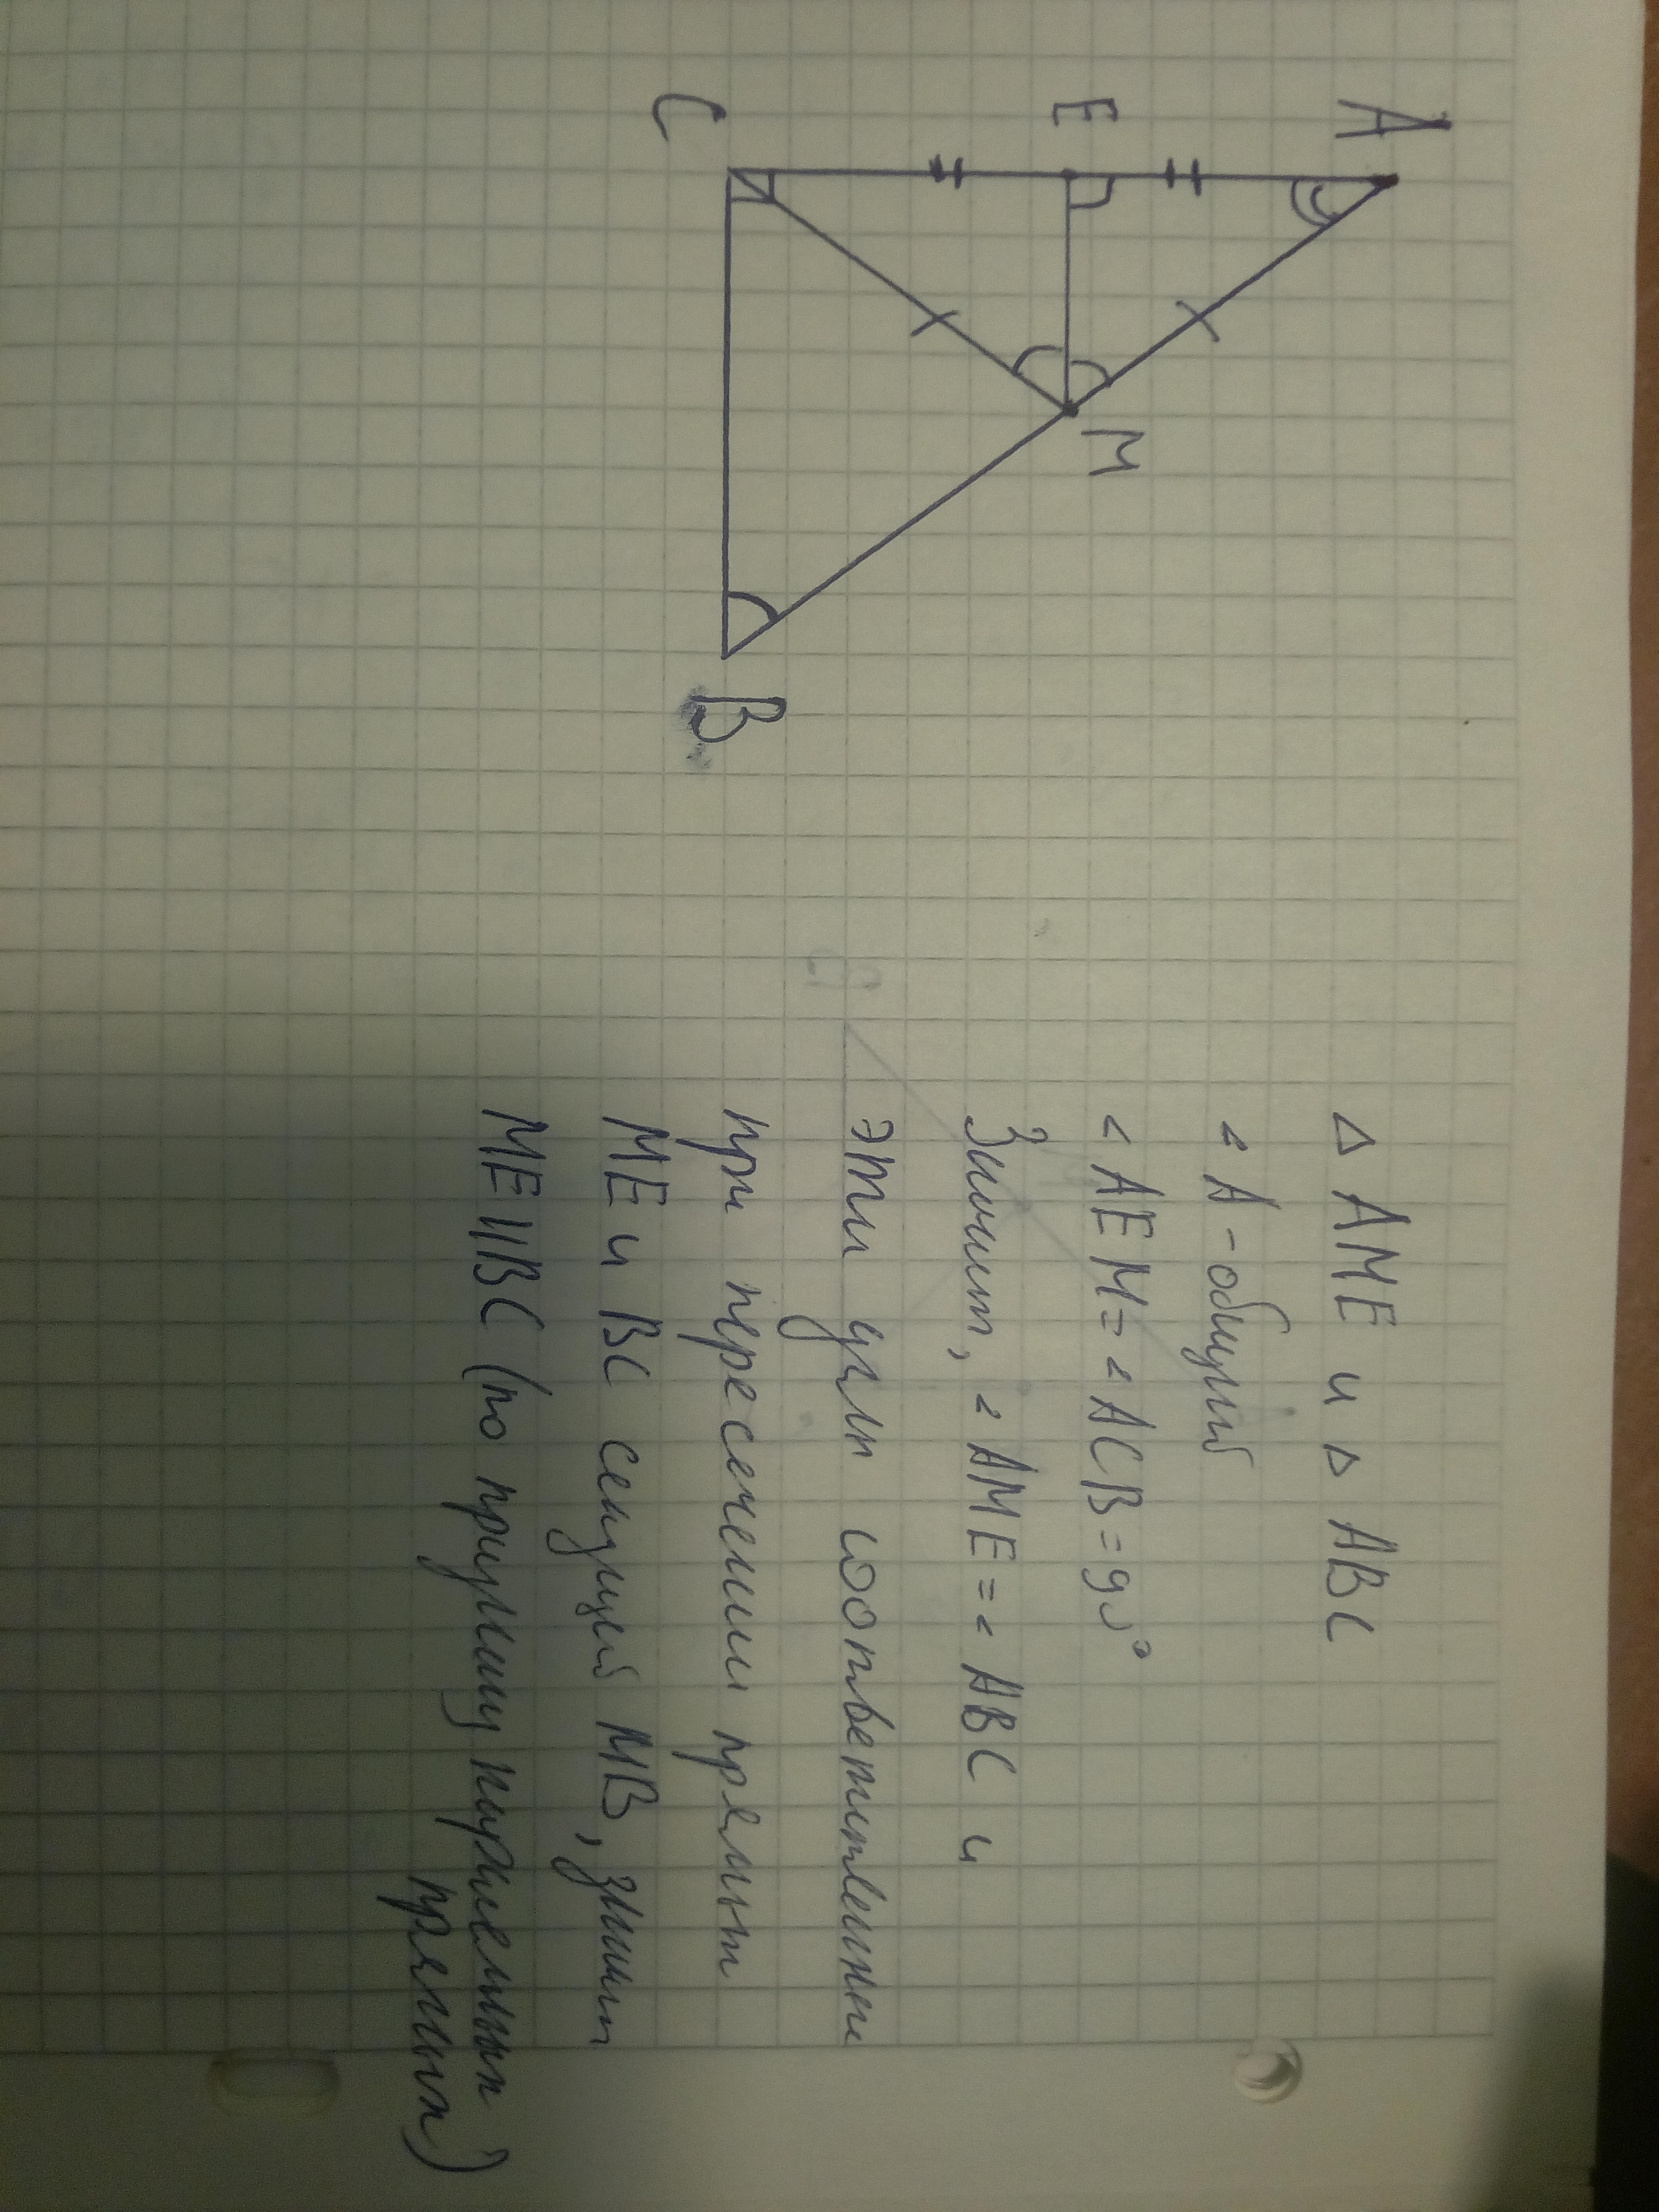 A
E
M
C
B
△ AME и △ ABC
∠ A - общий
∠ AEM = ∠ ACB = 90°
Значит, ∠ AME = ∠ ABC и
эти углы соответственные
при пересечении прямых
ME и BC секущей MB, значит
ME || BC (по признаку параллельных
прямых)